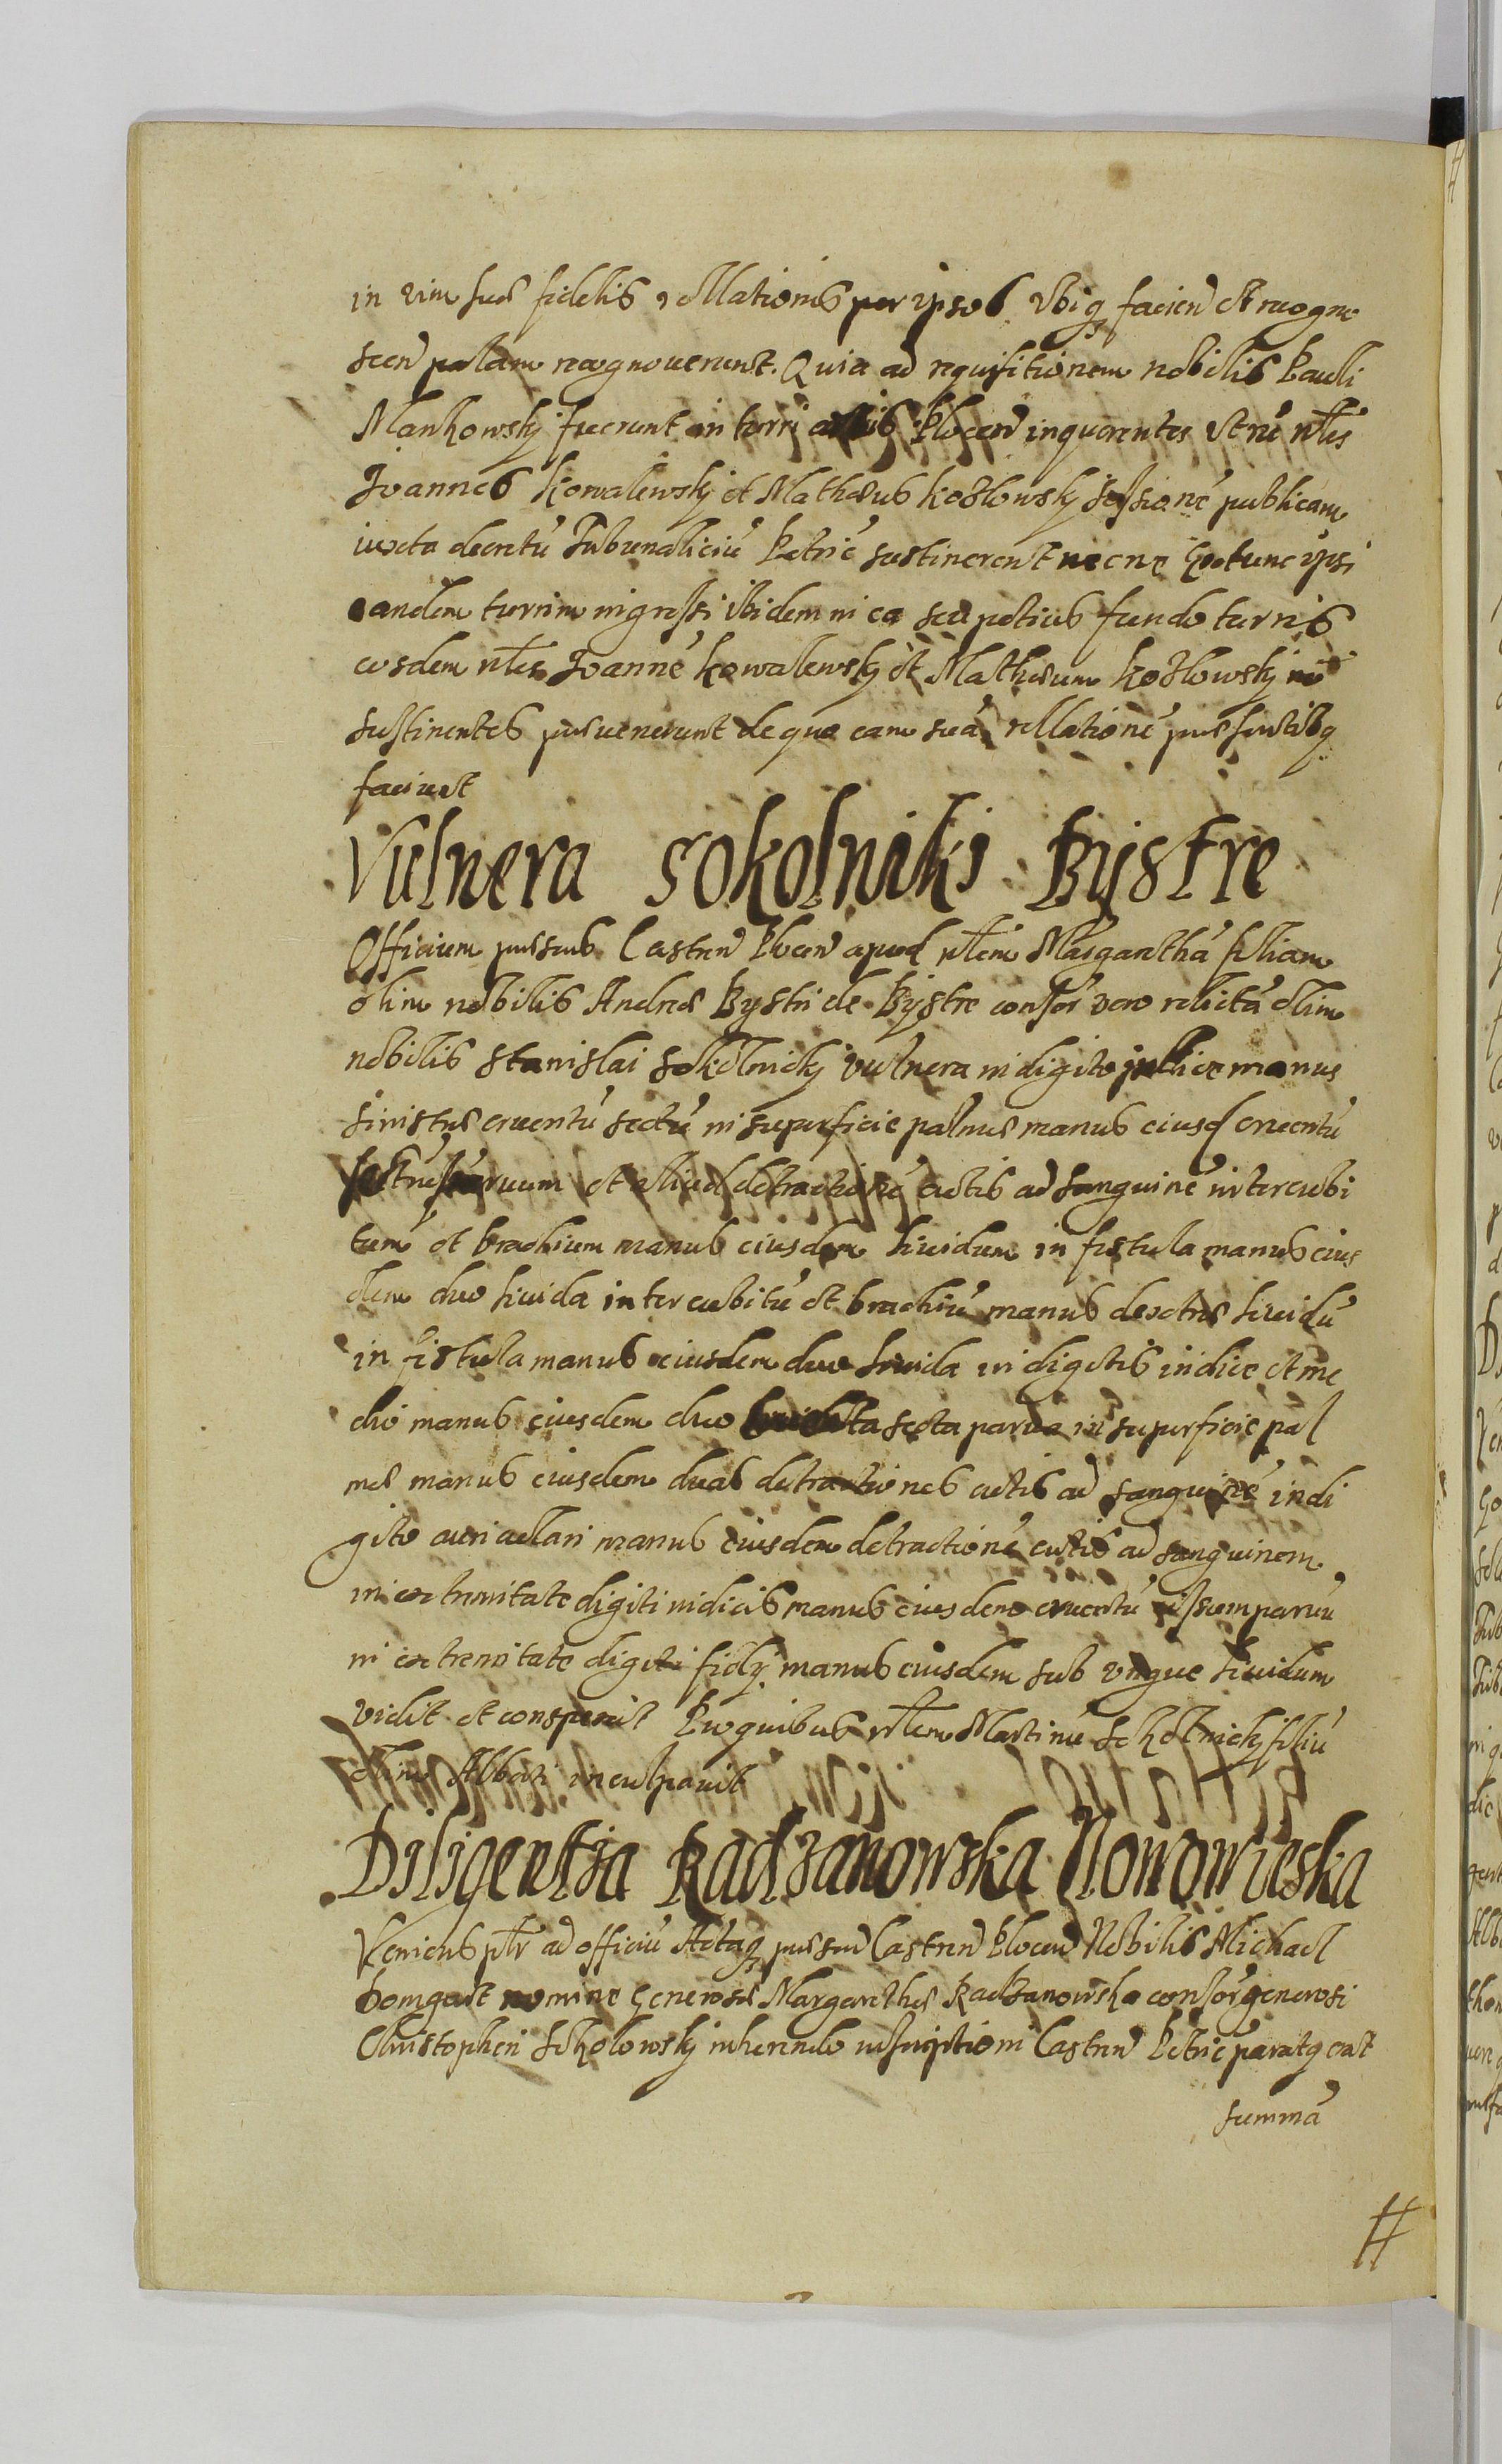 in vim suæ fidelis rellationis per ipsos vbiq facien et recogno
scen palam recognouerunt. Quia ad requisitionem nobilis Pauli
Mankowskÿ fuerunt in turri arcis Plocen inquerentes vtrũ nłes
Joannes Kowalewskÿ et Mathæus Kozlowskÿ sessionẽ publicam
iuxta decretũ Tribunaliciũ Petric sustinerent necne Et tunc ipsi
eandem turrim ingressi ibidem in ea seu potius fundo turris
eosdem nłes Joannẽ Kowalewskÿ et Mathæum Kozlowskÿ nõ
sustinentes inuenerunt de quo eam suã rellationẽ præsentibq
faciunt
Vulnera Sokolniki Bÿstre
Officium præsens Castren Plocen apud nłem Margarethã filiam
olim nobilis Andreæ Bystri de Bÿstre consor vero relictã olim
nobilis Stanislai Sokolnickÿ vulnera in digito pollice manus
sinistræ cruentũ sectũ in superficie palmæ manus eiusd cruentũ
sectũ paruum et aliud detractionẽ cutis ad sanguinẽ inter cubi
tum et brachium manus eiusdem liuidum in fistula manus eius
dem duo liuida inter cubitũ et brachiũ manus dextræ liuidũ
in fistula manus eiusdem duo liuida in digitis indice et me
dio manus eiusdem duo cruenta secta parua in superficie pal
mæ manus eiusdem duas detractiones cutis ad sanguinẽ in di
gito auriculari manus eiusdem detractionẽ cutis ad sanguinem
in extremitate digiti indicis manus eiusdem cruentũ cissum paruũ
in extremitate digiti fidÿ manus eiusdem sub vngue liuidum
vidit et conspexit Pro quibus nłem Martinũ Sokolnickÿ filiũ
olim Alberti inculpauit
Diligentia Radzanowska Nowowieska
Veniens płr ad officiũ Actaq præsen Castren Plocen Nobilis Michael
Bomgart nomine Generosæ Margarethæ Radzanowska consor generosi
Christophori Sokolowskÿ inherendo inscriptioni Castren Petric paratq erat
summã
#